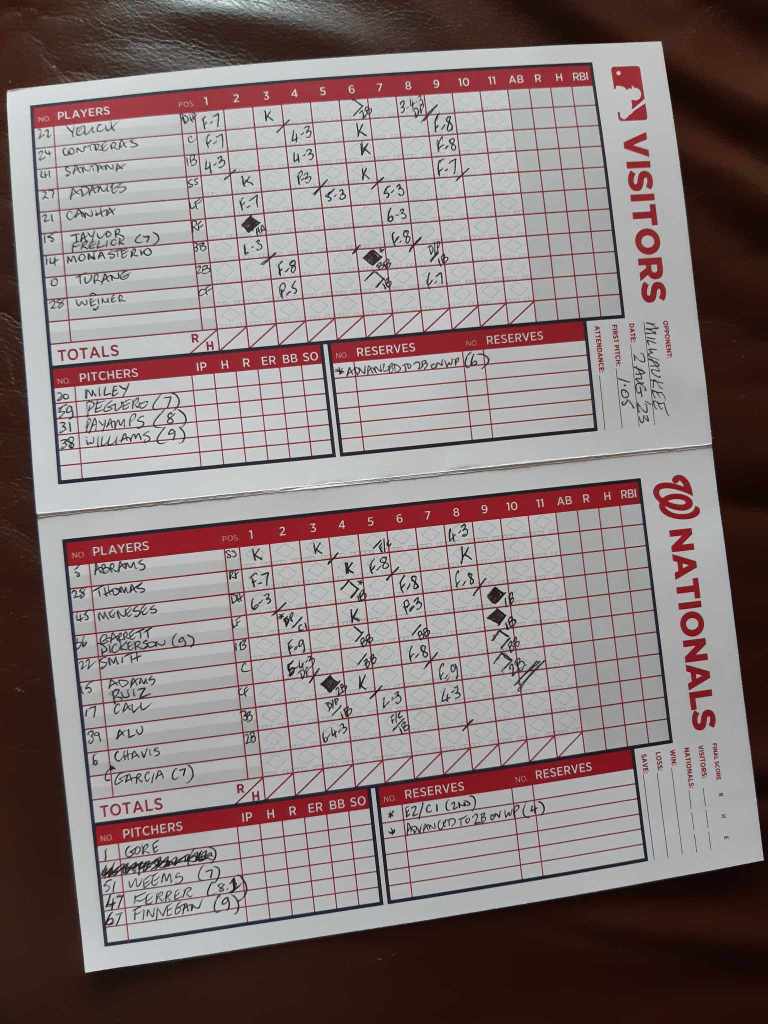 VISITORS
OPPONENT: MILWAUKEE
DATE: 2 AUG '23
FIRST PITCH: 1:05
ATTENDANCE:
NO. PLAYERS POS. 1 2 3 4 5 6 7 8 9 10 11 AB R H RBI
22 YELICH DH F.7 K 2B 3.4.3 DP
24 CONTRERAS C F.7 4-3 K F.8
41 SANTANA 1B 4-3 4-3 K F.8
27 ADAMES SS K P3 K F.7
21 CANHA F.7 5-3 5-3
15 TAYLOR RF HR 6-3
FRELICK (7)
14 MONASTERIO 3B F.8
0 TURANG 2B F.8 1B
28 WEIMER CF P.5
TOTALS R H
NO. PITCHERS IP H R ER BB SO
20 MILEY
59 PEGUERO (7)
31 PAYAMPS (8)
38 WILLIAMS (9)
NO. RESERVES NO. RESERVES
* ADVANCED TO 2B ON WP (6)
NATIONALS
FINAL SCORE R H E
VISITORS:
NATIONALS:
WIN:
LOSS:
SAVE:
NO. PLAYERS POS. 1 2 3 4 5 6 7 8 9 10 11 AB R H RBI
5 ABRAMS SS K K 4-3
28 THOMAS RF F.7 K F.8 K
45 MENESES DH 6-3 1B F.8 F.8
GARRETT K P.3 1B
DICKERSON (9)
22 SMITH 1B F.9 BB BB 1B
15 ADAMS C 5-4-3 DP BB F.8 BB
RUIZ
17 CALL CF 2B K F.9 2B
39 ALU 3B 1B 4-3
6 CHAVIS 2B 6-4-3 1B
GARCIA (7)
TOTALS R H
NO. PITCHERS IP H R ER BB SO
1 GORE
51 WEEMS (7)
47 FERRER (8.1)
67 FINNEGAN (9)
NO. RESERVES NO. RESERVES
* E2/C1 (2ND)
ADVANCED TO 2B ON WP (4)